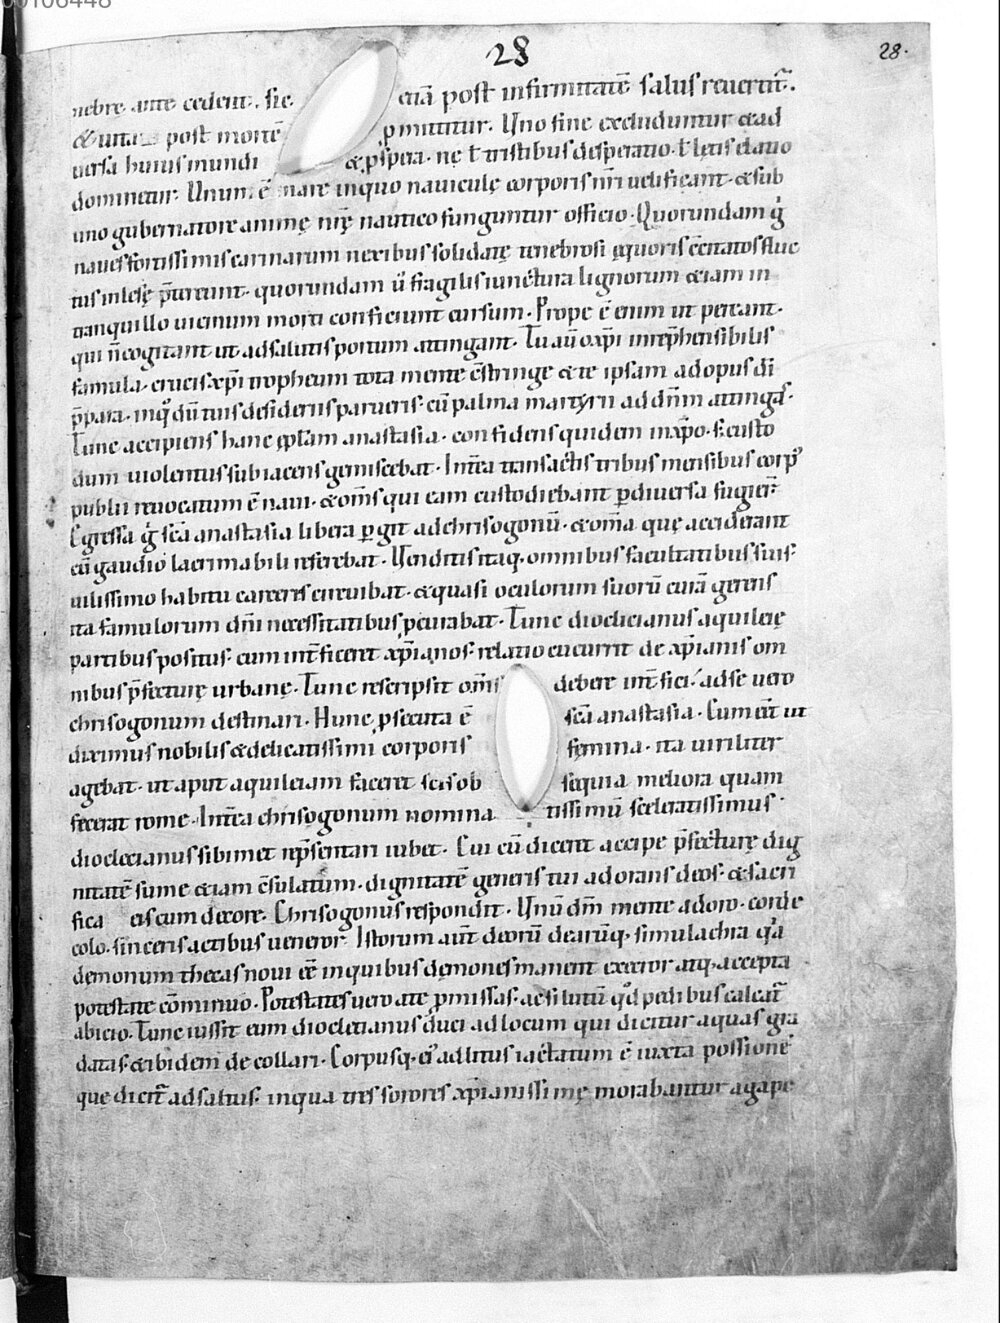 00106448
28
28.
nebre ante cedent. sic etiā post infirmitatē salus reuertit̄.
& uita post mortē ꝓmittitur. Uno fine excluduntur & ad
uersa huius mundi & ꝓspera. ne ł tristibus desperatio. ł lętis elatio
dominetur. Unum ē mare in quo nauiculę corporis n̄ri uelificant. & sub
uno gubernatore animę n̄rę nautico funguntur officio. Quorundam g̊
naues fortissimis carinarum nexibus solidatę tenebrosi ęquoris c̄citatos fluc
tus inlesę p̄tereunt. quorundam u̓ fragilis iunctura lignorum &iam in
tranquillo uicinum morti conficiunt cursum. Prope ē enim ut pereant.
qui n̄ cogitant ut ad salutis portum attingant. Tu aū o xp̄i inrep̄hensibilis
famula. crucis xp̄i tropheum tota mente c̄stringe & te ipsam ad opus dī
p̄para. in q̊ dū tuis desideriis parueris. cū palma martyrii ad dn̄m attingas.
Tunc accipiens hanc ep̄lam anastasia. confidens quidem in xp̄o. s; custo
dum uiolentus subiacens gemiscebat. Int̄ea transactis tribus mensibus corp̓
publii reuocatum ē naui. & om̄s qui eam custodiebant ꝑ diuersa fugier̄
Egressa g̊ sc̄a anastasia libera ꝑgit ad chrisogonū. & om̄a quę acciderant
cū gaudio lacrimabili referebat. Uenditis itaq. omnibus facultatibus suis.
uilissimo habitu carceris circuibat. & quasi oculorum suorū curā gerens
ita famulorum dn̄i necessitatibus ꝓcurabat. Tunc dioclicianus aquileię
partibus positus. cum int̄ficeret xp̄ianos. relatio cucurrit de xp̄ianis om
nibus p̄fecturę urbanę. Tunc rescripsit om̄s debere int̄fici. ad se uero
chrisogonum destinari. Hunc ꝓsecuta ē sc̄a anastasia. Cum eēt ut
diximus nobilis & delicatissimi corporis femina. ita uiriliter
agebat. ut aput aquileiam faceret sc̄is obsequia meliora quam
fecerat rome. Int̄ea chrisogonum nominatissimū sceleratissimus
dioclecianus sibimet rep̄sentari iubet. Cui cū diceret accipe p̄fecturę dig
nitatē sume &iam c̄sulatum. dignitatē generis tui adorans deos. & sacri
fica eis cum decore. Chrisogonus respondit. Unū dm̄ mente adoro. corde
colo. sinceris actibus ueneror. Istorum aūt deorū dearūq. simulachra q̓a
demonum thecas noui eē in quibus dęmones manent execror atq. accepta
potestate c̄minuo. Potestates uero a te ꝓmissas. ac si lutū q̊d pedibus calcat̄
abicio. Tunc iussit eum dioclecianus duci ad locum qui dicitur aquas gra
datas. & ibidem decollari. Corpusq. ei̓ ad litus iactatum ē iuxta possionē
que dicit̄ ad saltus. in qua tres sorores xp̄ianissimę morabantur agape